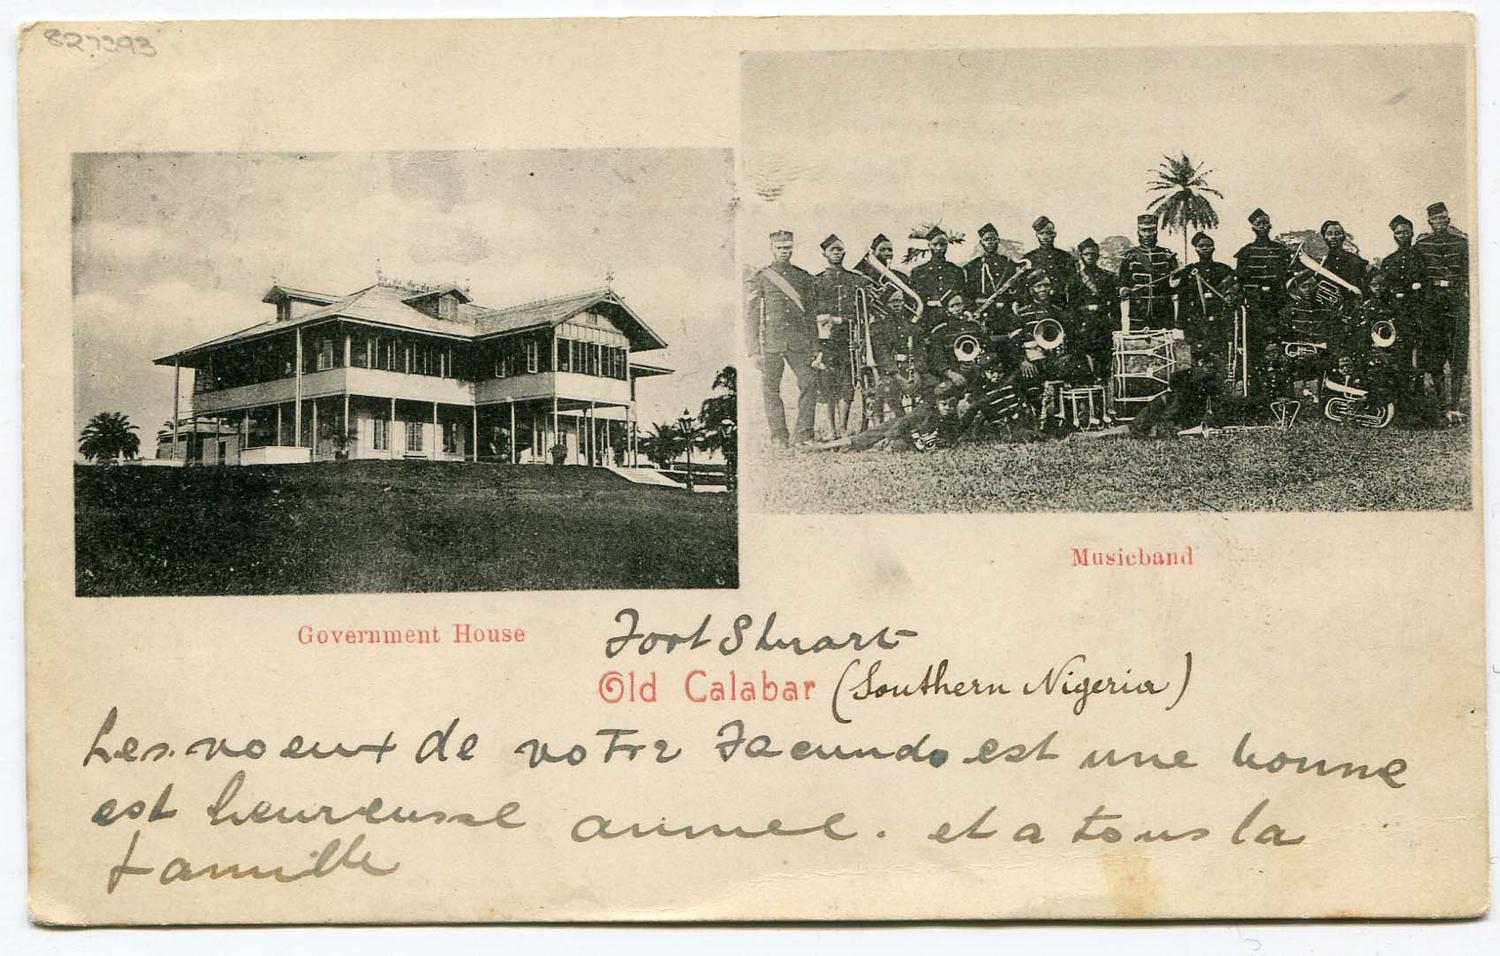 827393
Musicband
Government House
Fort Stuart
Old Calabar (Southern Nigeria)
Les voeux de votre Facundo est une bonne
est heureusse annee. et a tous la
famille